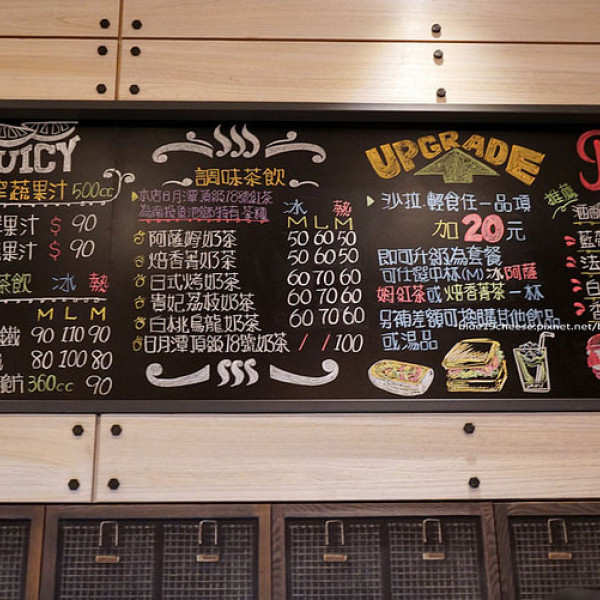 UICY
蔬果汁 500cc
果汁 $ 90
果汁 $ 90
茶飲 冰 熱
M L M
鐵 90 110 90
80 100 80
片 360cc 90
調味茶飲
本店日月潭頂級18號紅茶
為南投魚池鄉特有茶種
冰 熱
M L M
阿薩姆奶茶 50 60 50
焙香菁奶茶 50 60 50
日式烤奶茶 60 70 60
貴妃荔枝奶茶 60 70 60
白桃烏龍奶茶 60 70 60
日月潭頂級18號奶茶 / / 100
UPGRADE
沙拉.輕食任一品項
加20元
即可升級為套餐
可任選中杯(M)冰阿薩
姆紅茶或焙香菁茶一杯
另補差額可換購其他飲品
或湯品
推薦
藍
法
白
香